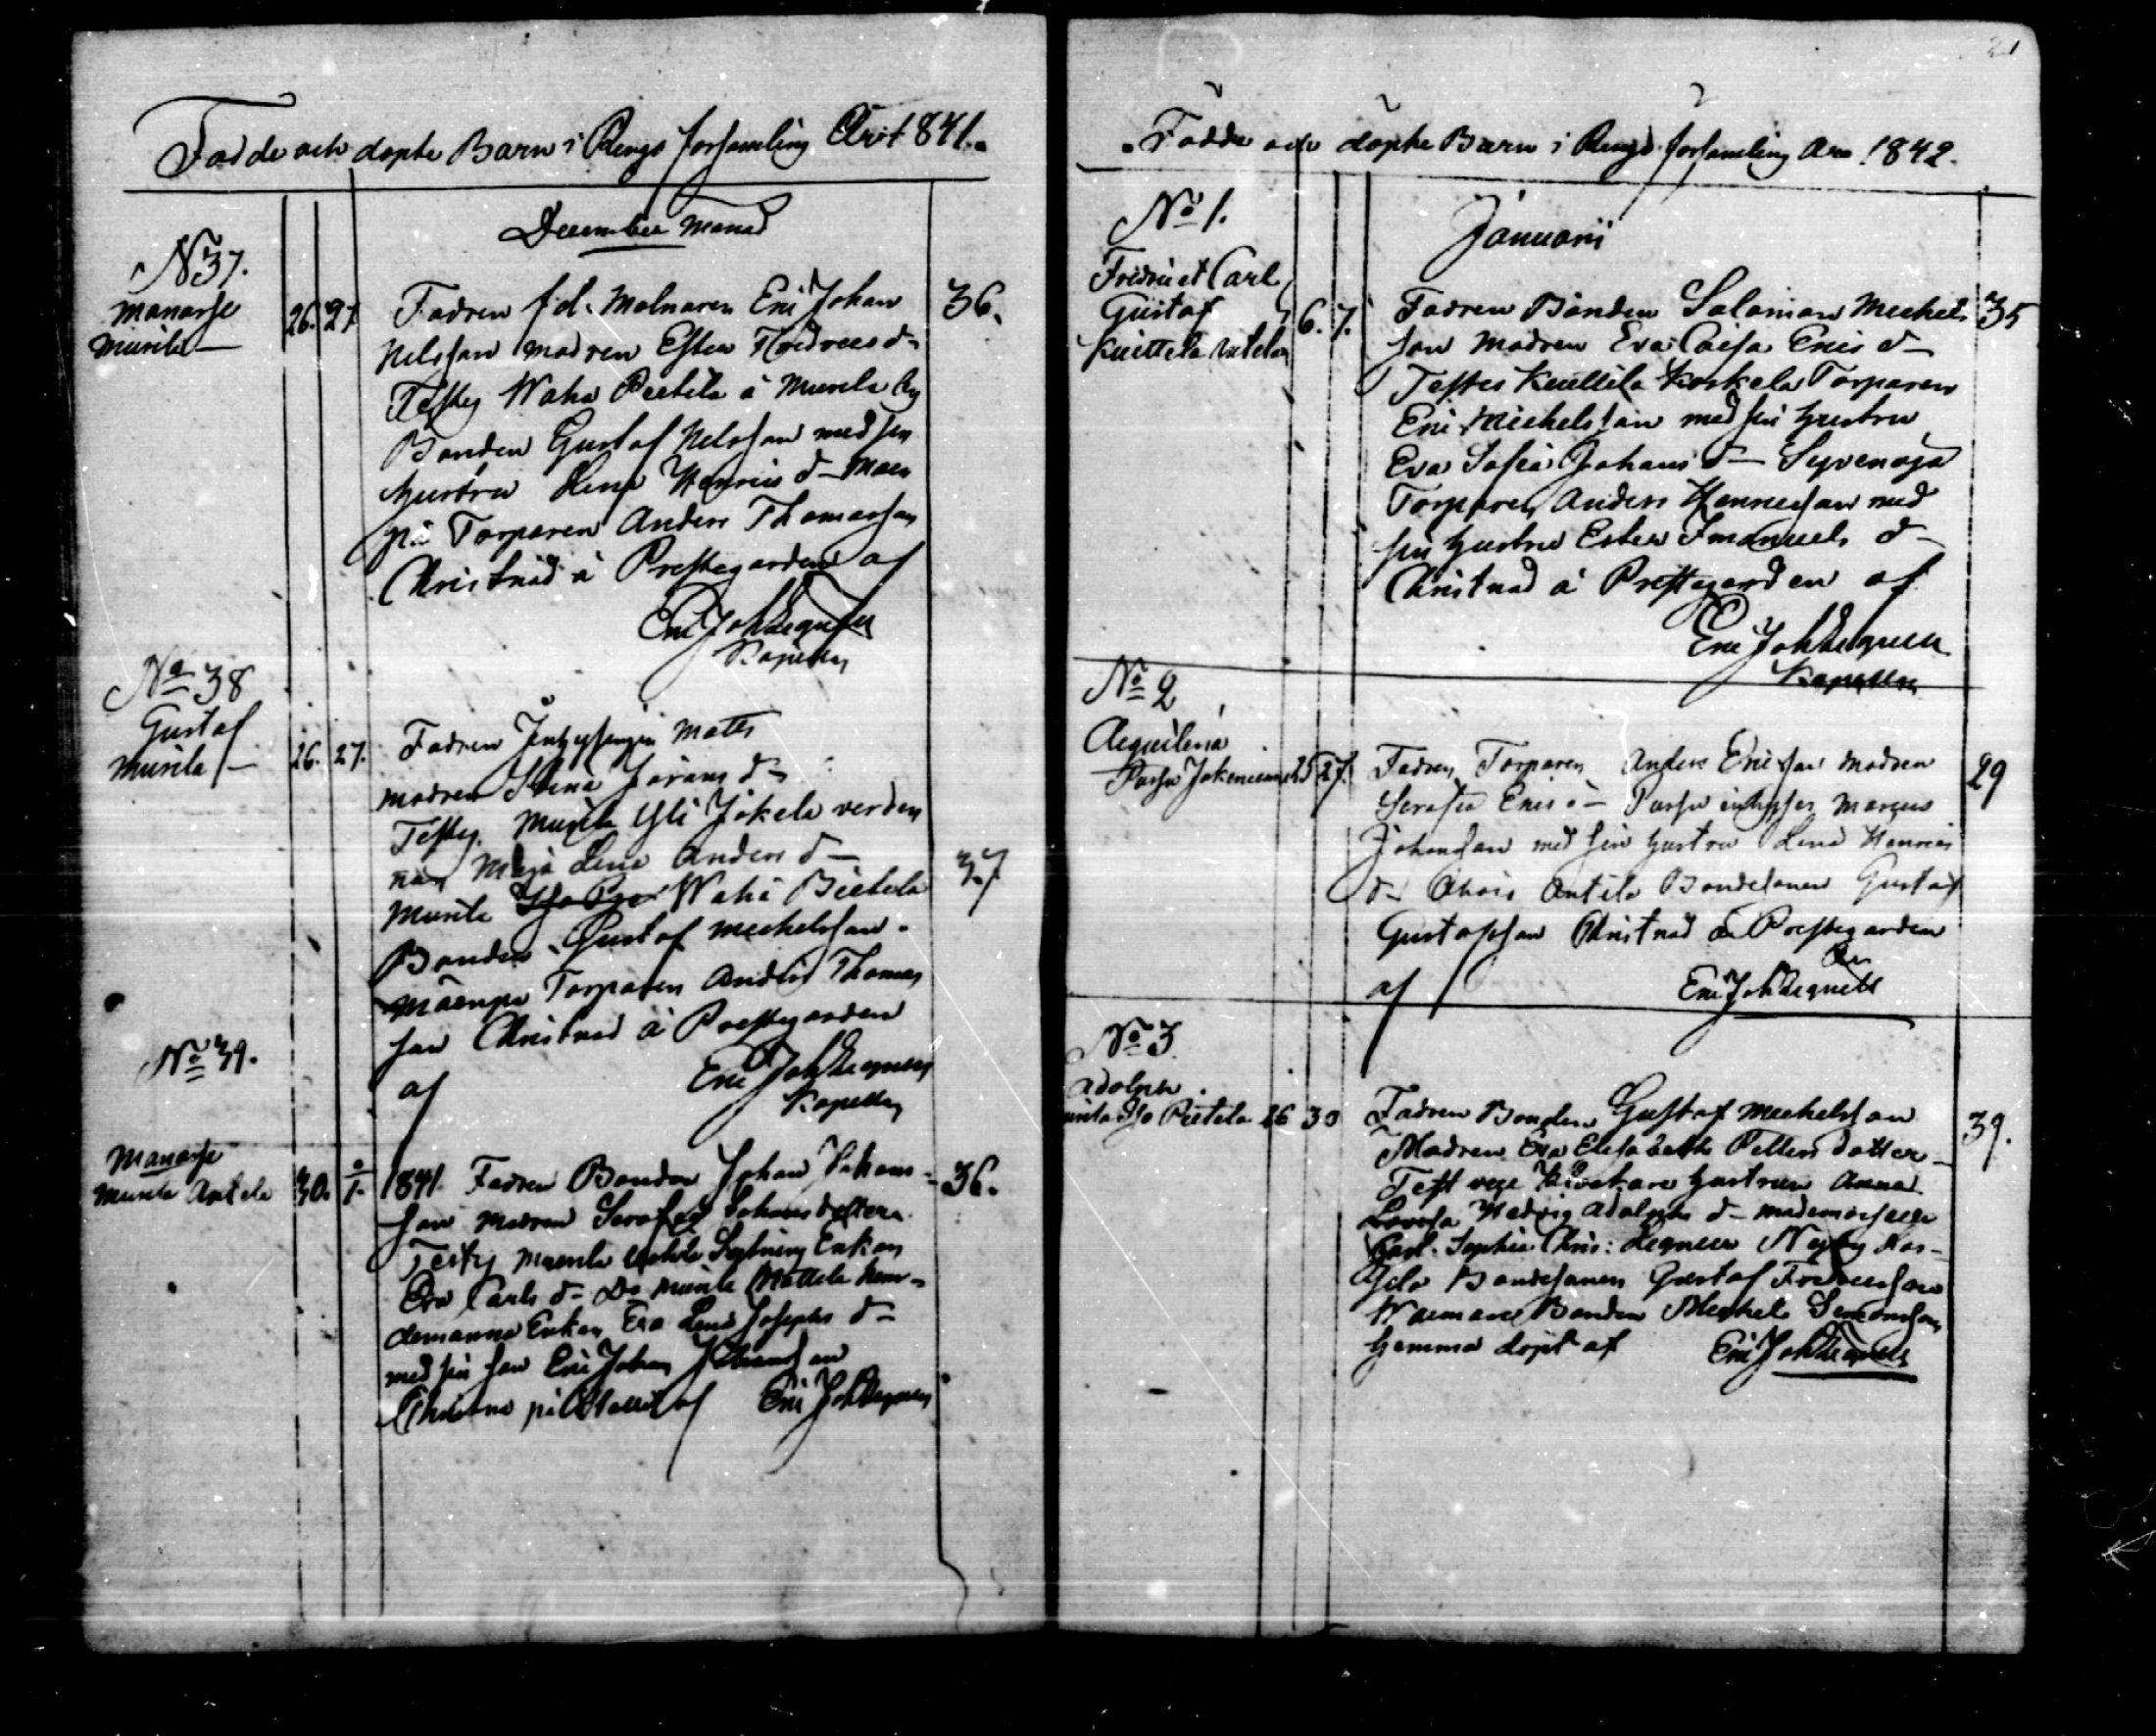 Födde och döpte Barn i Rengo församling Året 1841.
December Månad
N 37.
Manasse
Murila
26. 27
Fadren fd. Molnaren Eric Johan
Nilsson modren Ester Fredrics d-
Testes Waha Pietila a Murila by
Bonden Gustaf Nilsson med sin
hustru Lena Henrics d- Maen
pä Torparen Anders Thomasson
Christnad a Prestegarden af
Eric Joh Legnell
Kapellan
36.
No 38
Gustaf
Murila
26. 27.
Fadren Inhysingen Matts
modren Stina Görans d-
Testes. Murila Yli Jokela verdin
nan Maja Lena Anders d-
Murila Waha Pietila
Bonden Gustaf Michelsson.
Mäenpä Torparen Anders Thomas
son Christnad a Prestegarden
af Eric Joh Legnell
Kapellan
37
No 39.
Manasse
Murila Antela
30. 1.
1841. Fadren Bonden Johan Johans-
son Modren Serafia Johansdotter.
Eva Carls d- Do Murila Mattila Nem-
demanns Enkan Eva Lena Josephs d-
med sin son Eric Johan Johansson
af Eric Joh Legnell
36.
21
Födde och döpte Barn i Rengo församling Aar 1842.
Januarii
No 1.
Fredric et Carl
Gustaf
6. 7.
Fadren Bonden Salomon Michels
son Modren Eva Caisa Erics d-
Testes Kuittila Koskela Torparen
Eric Michelsson med sin hustru
Eva Sofia Johans d- Syvenoja
Torparen Anders Henricsson med
sin hustru Ester Imanuels d-
Christnad a Prestegarden af
Eric Joh Legnell
Kapellan
35
No 2
Aequilina
25 27.
Fadren Torparen Anders Ericsson Modren
Serafia Erics d- inhyses Marcus
Johansson med sin hustru Lena Henrics
d- Ahois Antila Bondesonen Gustaf
Gustafsson Christnad a Prestegarden
af Eric Joh Legnell
29
No 3.
Adolph.
Iso Pietela 26 30
Fadren Bonden Gustaf Michelsson
Modren Eva Elisabeth Petters dotter
Test hustrun Anna
Lovisa Hedvig Adolphs d- mademoiselle
Carl. Sophia Chris: Legnell Nyby
Bondesonen Gustaf Fredricsson
Bonden Michel Simonsson
hemma döpt af Eric Joh Legnell
39.